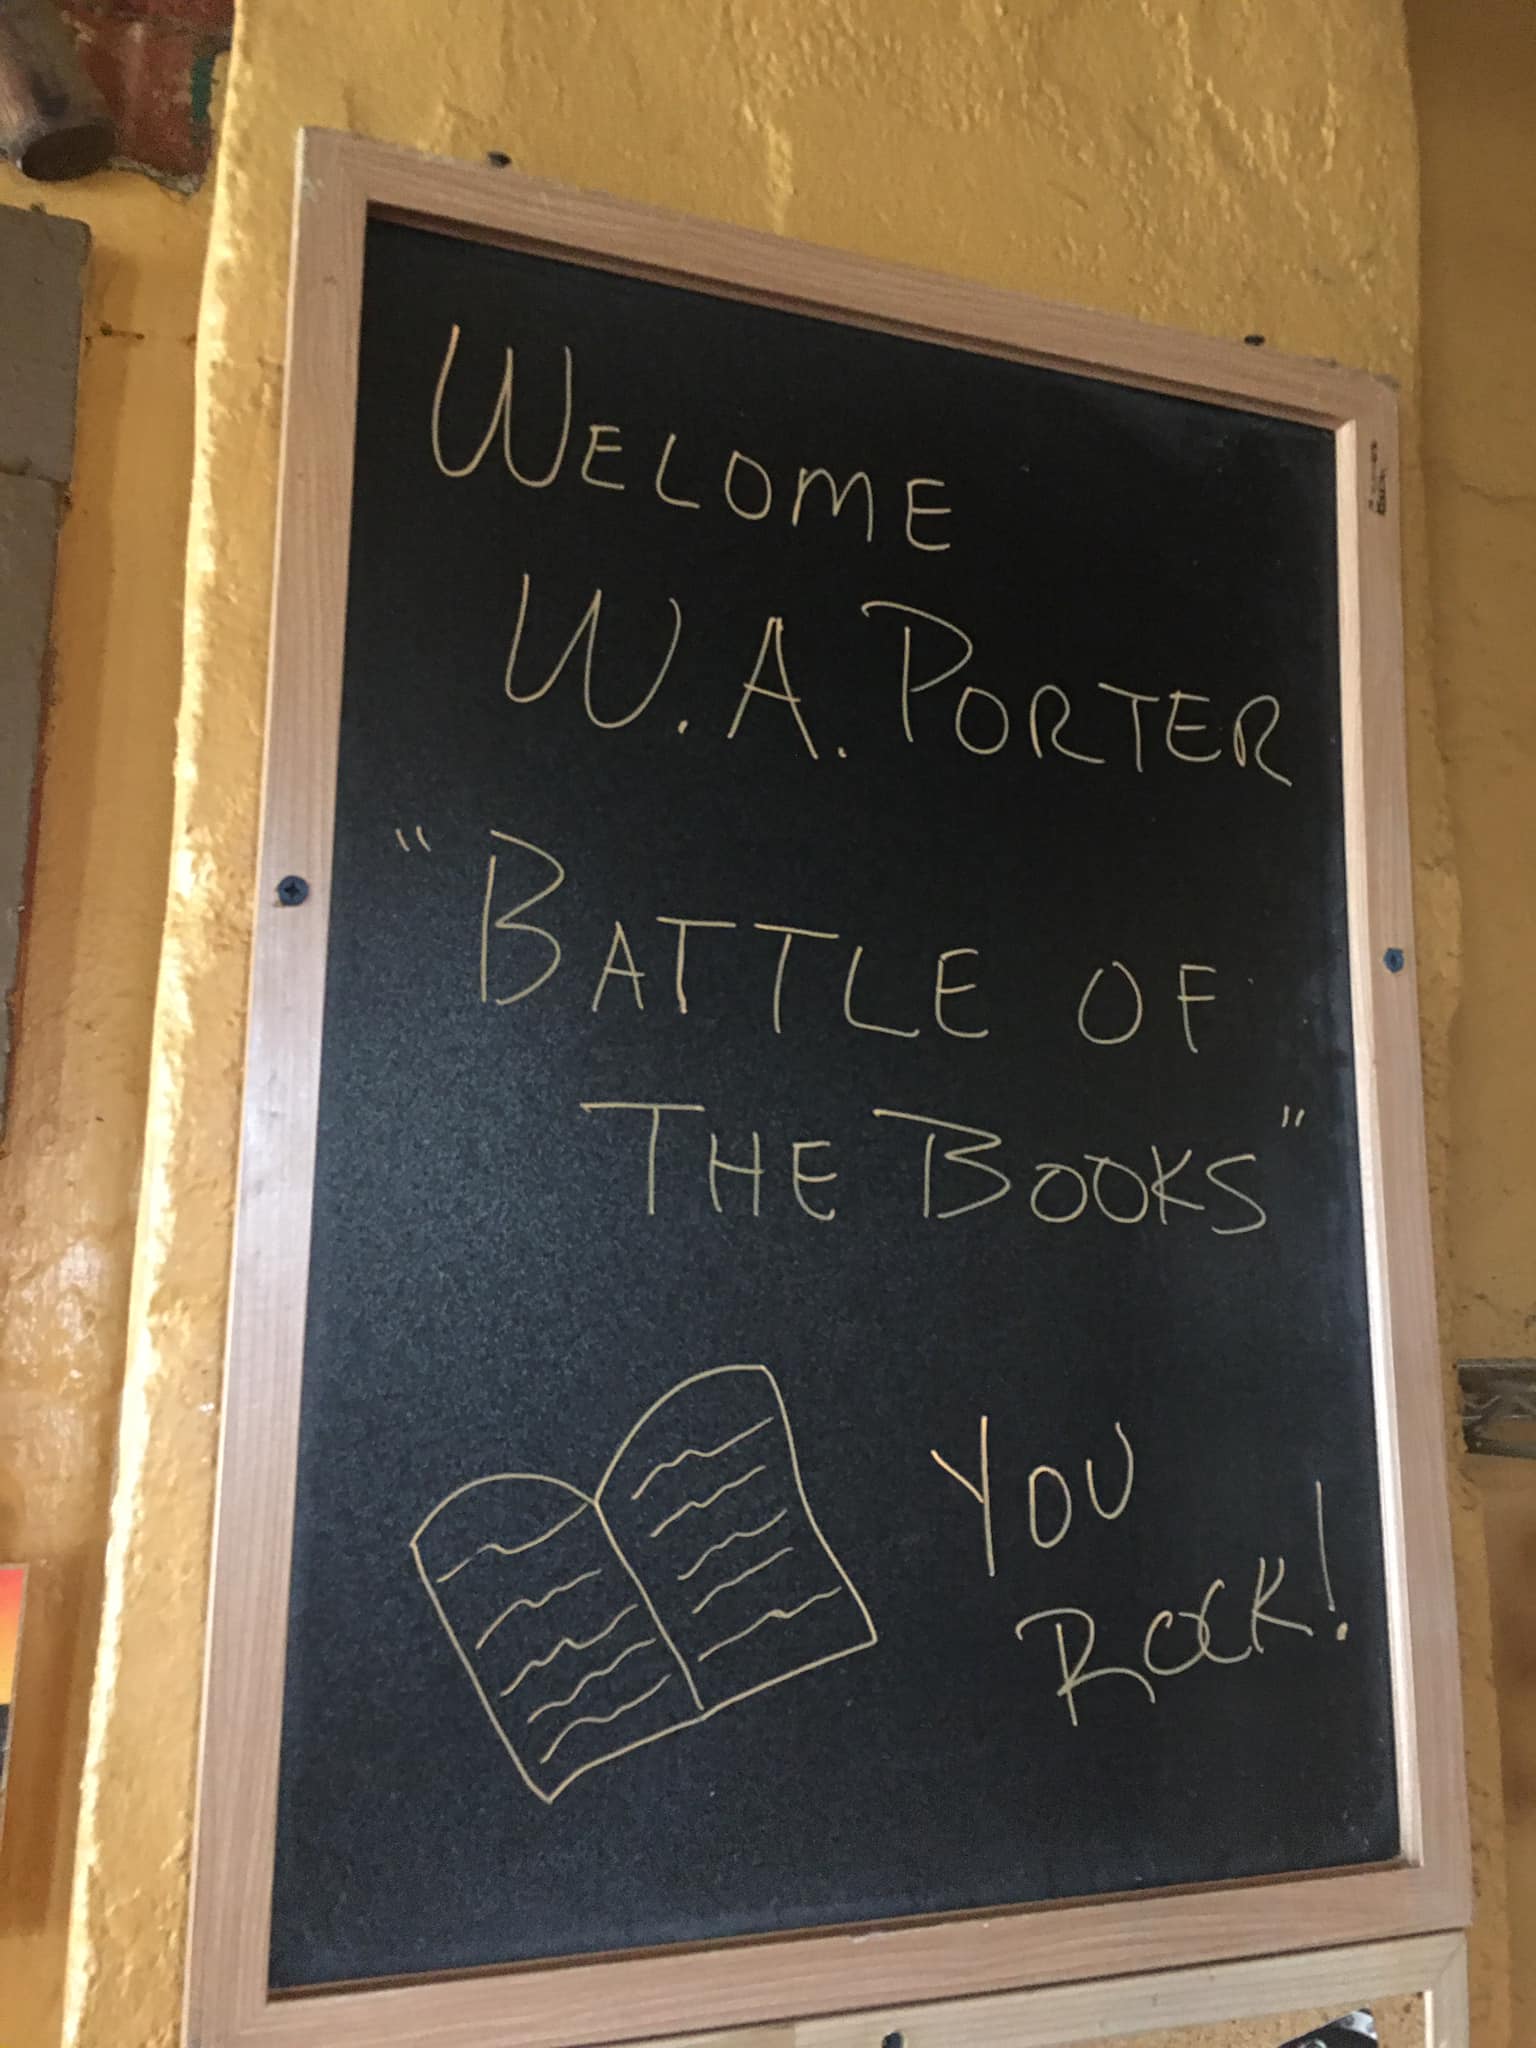 WELOME
W.A. PORTER
"BATTLE OF
THE BOOKS"
YOU
ROCK!